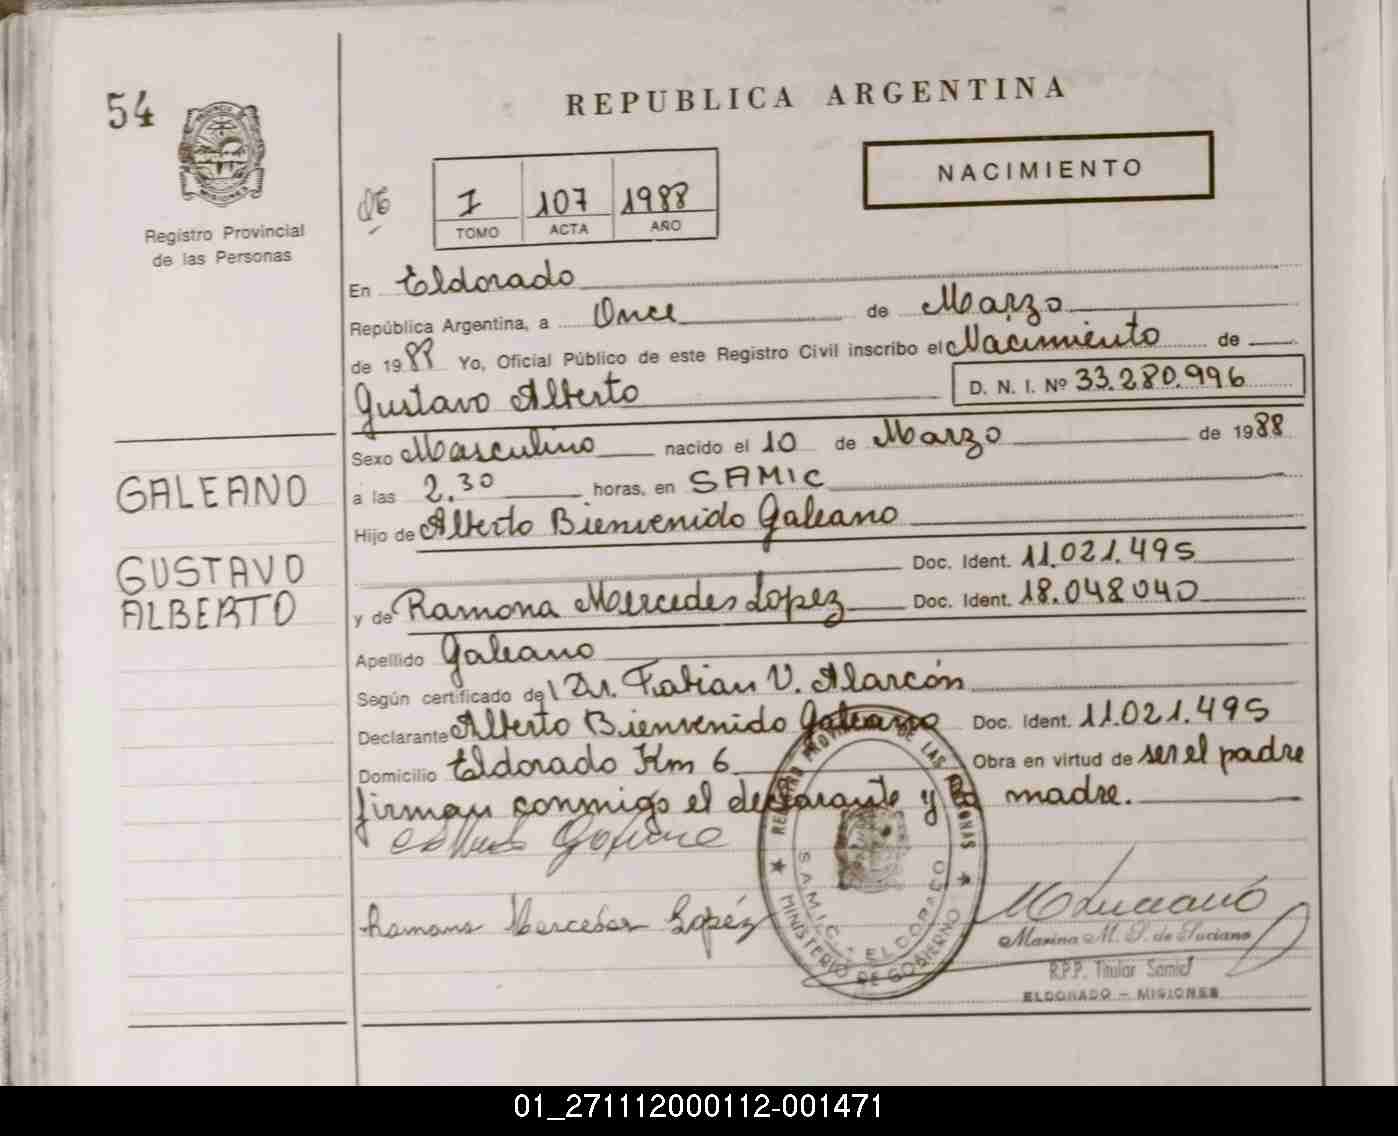 54
REPUBLICA ARGENTINA
NACIMIENTO
PROVINCIA DE
MISIONES
Registro Provincial
de las Personas
I 107 1988
TOMO ACTA AÑO
En Eldorado
República Argentina, a Once de Marzo
de 1988 Yo, Oficial Público de este Registro Civil inscribo el Nacimiento de
Gustavo Alberto D. N. I. Nº 33.280.996
Sexo Masculino nacido el 10 de Marzo de 1988
GALEANO
a las 2.30 horas, en SAMIC
Hijo de Alberto Bienvenido Galeano
GUSTAVO
ALBERTO
Doc. Ident. 11.021.495
y de Ramona Mercedes Lopez Doc. Ident. 18.048040
Apellido Galeano
Según certificado del Dr. Fabian V. Alarcón
Declarante Alberto Bienvenido Galeano Doc. Ident. 11.021.495
Domicilio Eldorado Km 6 Obra en virtud de ser el padre
firman conmigo el declarante y la madre.
Ramona Mercedes Lopéz
REGISTRO PROVINCIAL DE LAS PERSONAS
S.A.M.I.C. - ELDORADO
MINISTERIO DE GOBIERNO
Marina M. S. de Luciano
R.P.P. Titular Samic
ELDORADO - MISIONES
01_271112000112-001471